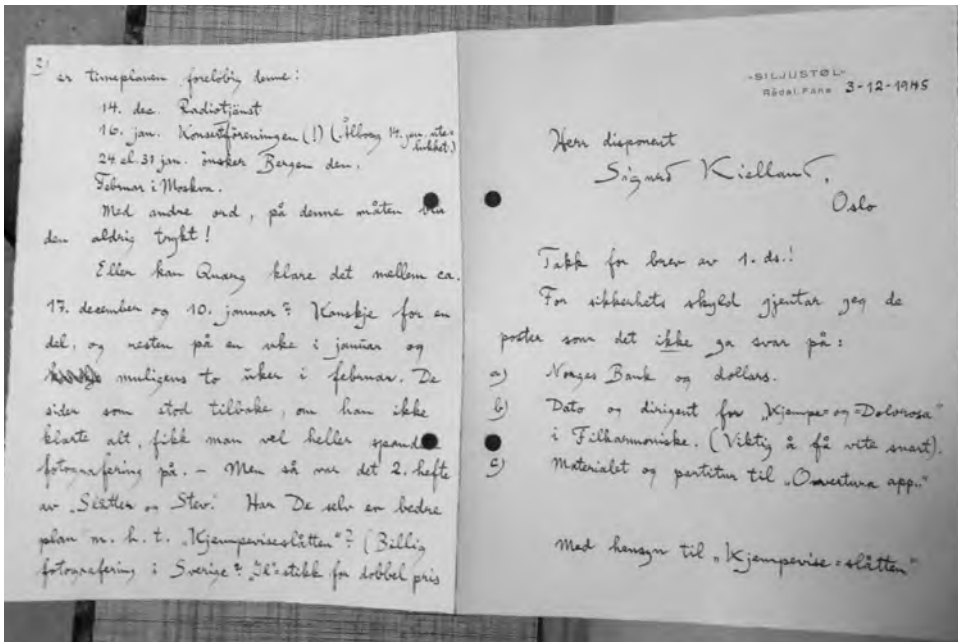 3)
er timeplanen foreløbig denne:
14. dec. Radiotjänst
16. jan. Konsertföreningen (!) (Ålborg 14. jan. ute=
lukket.)
24 el. 31 jan. ønsker Bergen den.
Februar i Moskva.
Med andre ord, på denne måten blir
den aldrig trykt!
Eller kan Quarg klare det mellem ca.
17. december og 10. januar? Kanskje for en
del, og resten på en uke i januar og
muligens to uker i februar. De
sider som stod tilbake, om han ikke
klarte alt, fikk man vel heller spandere
fotografering på. – Men så var det 2. hefte
av „Slåtter og Stev". Har De selv en bedre
plan m. h. t. „Kjempeviseslåtten"? (Billig
fotografering i Sverige? Il=stikk for dobbel pris
-SILJUSTØL-
Rådal, Fana 3-12-1945
Herr disponent
Sigurd Kielland,
Oslo
Takk for brev av 1. ds.!
For sikkerhets skyld gjentar jeg de
poster som det ikke ga svar på:
a) Norges Bank og dollars.
b) Dato og dirigent for „Kjempe= og =Dolorosa"
i Filharmoniske. (Viktig å få vite snart).
c) Materialet og partitur til „Ouvertura app."
Med hensyn til „Kjempevise=slåtten"